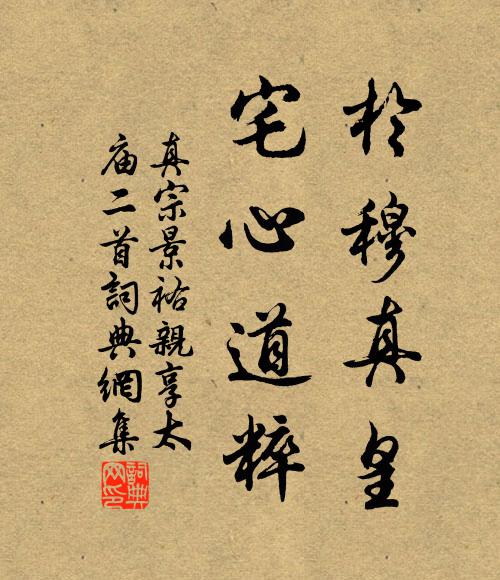 於穆真皇
宅心道粹
真宗景祐親享太
庙二首詞典網集
詞典
网印